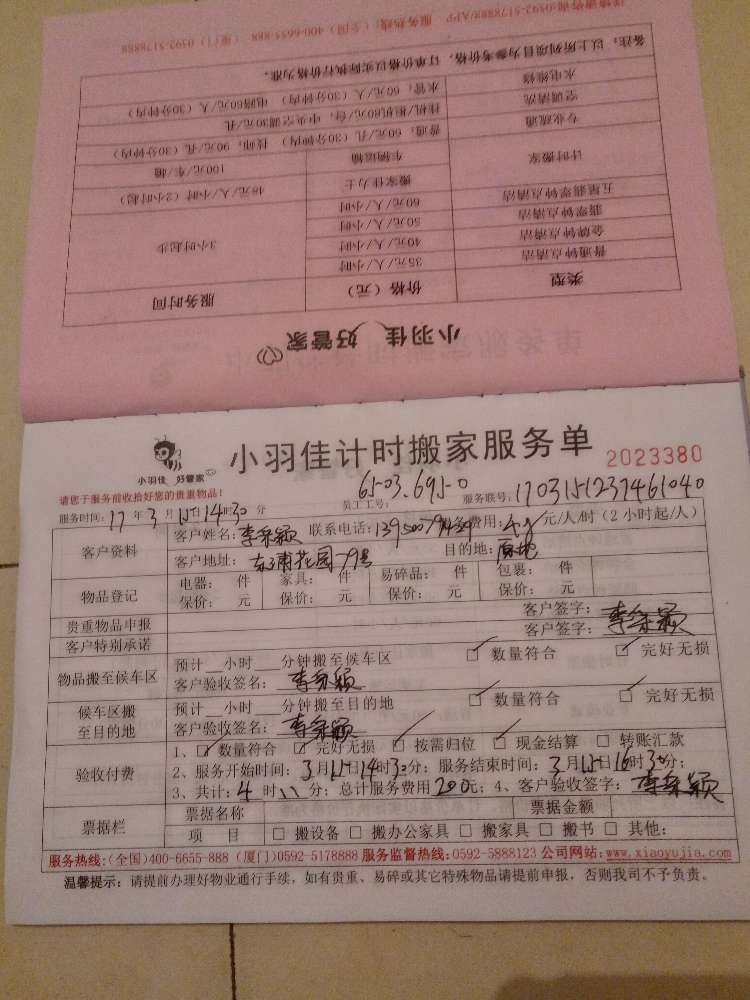 小羽佳 好管家
类型 价格（元） 服务时间
普通钟点清洁 35元/人/小时 3小时起步
金牌钟点清洁 40元/人/小时
翡翠钟点清洁 50元/人/小时
五星翡翠钟点清洁 60元/人/小时
计时搬家 搬家佳力士 48元/人/小时（2小时起）
车辆运输 100元/车/趟
专业疏通 普通，60元/孔（30分钟内） 技师，90元/孔（30分钟内）
空调清洗 挂机/柜机80元/台，中央空调30元/孔
水电维修 水管，60元/人（30分钟内） 电路60元/人（30分钟内）
备注：以上所列项目为参考价格，订单价格以实际执行价格为准。
服务热线：（全国）400-6655-888 （厦门）0592-5178888
详情请咨询:0592-5178888/APP
小羽佳 好管家
小羽佳计时搬家服务单 2023380
请您于服务前收拾好您的贵重物品！
员工工号： 6503.6950 服务联号：1703151237461040
服务时间：17 年 3 月 15 日 14 时 30 分
客户资料 客户姓名： 联系电话： 服务费用：48 元/人/时（2小时起/人）
客户地址：东浦花园79号 目的地：原地
物品登记 电器： 件 家具： 件 易碎品： 件 包裹： 件
保价： 元 保价： 元 保价： 元 保价： 元
贵重物品申报 客户签字：
客户特别承诺 客户签字：
物品搬至候车区 预计 小时 分钟搬至候车区 □ 数量符合 □ 完好无损
客户验收签名：
候车区搬至目的地 预计 小时 分钟搬至目的地 □ 数量符合 □ 完好无损
客户验收签名：
验收付费 1、□ 数量符合 □ 完好无损 □ 按需归位 □ 现金结算 □ 转账汇款
2、服务开始时间：3月15日14时30分；服务结束时间：3月15日16时30分；
3、共计：4 时 分；总计服务费用200元；4、客户验收签字：
票据栏 票据名称 票据金额
项 目 □ 搬设备 □ 搬办公家具 □ 搬家具 □ 搬书 □ 其他:
服务热线:(全国)400-6655-888 (厦门)0592-5178888 服务监督热线:0592-5888123 公司网站:www.xiaoyujia.com
温馨提示：请提前办理好物业通行手续，如有贵重、易碎或其它特殊物品请提前申报，否则我司不予负责。